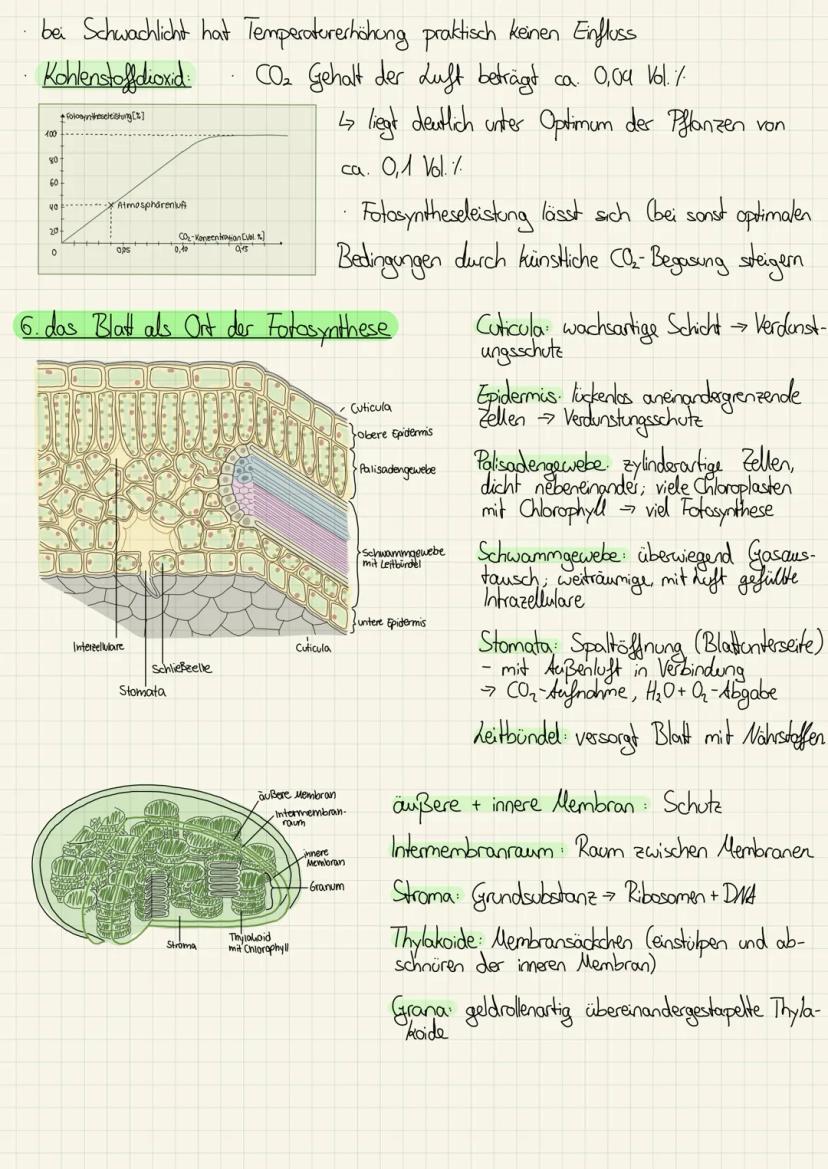 · bei Schwachlicht hat Temperaturerhöhung praktisch keinen Einfluss
· Kohlenstoffdioxid: · CO₂ Gehalt der Luft beträgt ca. 0,04 Vol.%
Fotosyntheseleistung [%]
100
80
60
40
20
0
Atmosphärenluft
CO₂-Konzentration [Vol. %]
0,05
0,10
0,15
↳ liegt deutlich unter Optimum der Pflanzen von
ca. 0,1 Vol.%
· Fotosyntheseleistung lässt sich (bei sonst optimalen
Bedingungen durch künstliche CO₂-Begasung steigern
6. das Blatt als Ort der Fotosynthese
Cuticula
obere Epidermis
Palisadengewebe
Schwammgewebe
mit Leitbündel
untere Epidermis
Cuticula
Interzellulare
Schließzelle
Stomata
Cuticula: wachsartige Schicht → Verdunst-
ungsschutz
Epidermis: lückenlos aneinandergrenzende
Zellen → Verdunstungsschutz
Palisadengewebe: zylinderartige Zellen,
dicht nebeneinander; viele Chloroplasten
mit Chlorophyll → viel Fotosynthese
Schwammgewebe: überwiegend Gasaus-
tausch; weiträumige, mit Luft gefüllte
Intrazellulare
Stomata: Spaltöffnung (Blattunterseite)
- mit Außenluft in Verbindung
→ CO₂-Aufnahme, H₂O + O₂-Abgabe
Leitbündel: versorgt Blatt mit Nährstoffen
äußere Membran
Intermembran-
raum
innere
Membran
Granum
Stroma
Thylakoid
mit Chlorophyll
äußere + innere Membran: Schutz
Intermembranraum: Raum zwischen Membranen
Stroma: Grundsubstanz → Ribosomen + DNA
Thylakoide: Membransäckchen (einstülpen und ab-
schnüren der inneren Membran)
Grana: geldrollenartig übereinandergestapelte Thyla-
koide